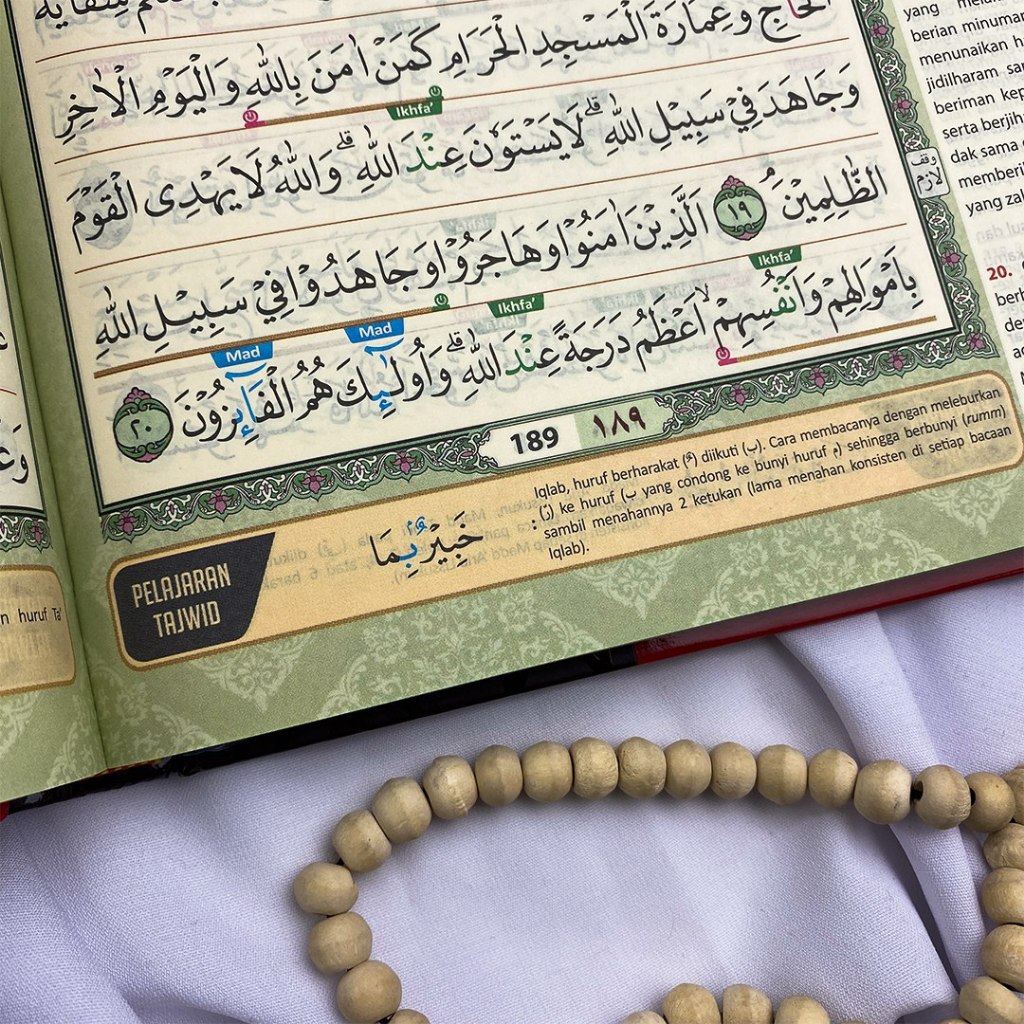 الْحَاۤجِّ وَعِمَارَةَ الْمَسْجِدِ الْحَرَامِ كَمَنْ اٰمَنَ بِاللّٰهِ وَالْيَوْمِ الْاٰخِرِ
Ikhfa'
وَجَاهَدَ فِيْ سَبِيْلِ اللّٰهِ ۗ لَا يَسْتَوٗنَ عِنْدَ اللّٰهِ ۗ وَاللّٰهُ لَا يَهْدِى الْقَوْمَ
الظّٰلِمِيْنَ ۘ ١٩ اَلَّذِيْنَ اٰمَنُوْا وَهَاجَرُوْا وَجَاهَدُوْا فِيْ سَبِيْلِ اللّٰهِ
Ikhfa' Ikhfa' Mad Mad
بِاَمْوَالِهِمْ وَاَنْفُسِهِمْۙ اَعْظَمُ دَرَجَةً عِنْدَ اللّٰهِ ۗ وَاُولٰۤىِٕكَ هُمُ الْفَاۤىِٕزُوْنَ ٢٠
189 ١٨٩
وقف لازم
yang
berian minuman
menunaikan
jidilharam
beriman
serta berjih
dak sama
memberi
yang zal
20.
PELAJARAN
TAJWID
خَبِيْرٌۢ بِمَا
: Iqlab, huruf berharakat (ـٌ) diikuti (ب). Cara membacanya dengan meleburkan
(نْ) ke huruf (ب yang condong ke bunyi huruf م) sehingga berbunyi (rumm)
sambil menahannya 2 ketukan (lama menahan konsisten di setiap bacaan
Iqlab).
n huruf Ta'